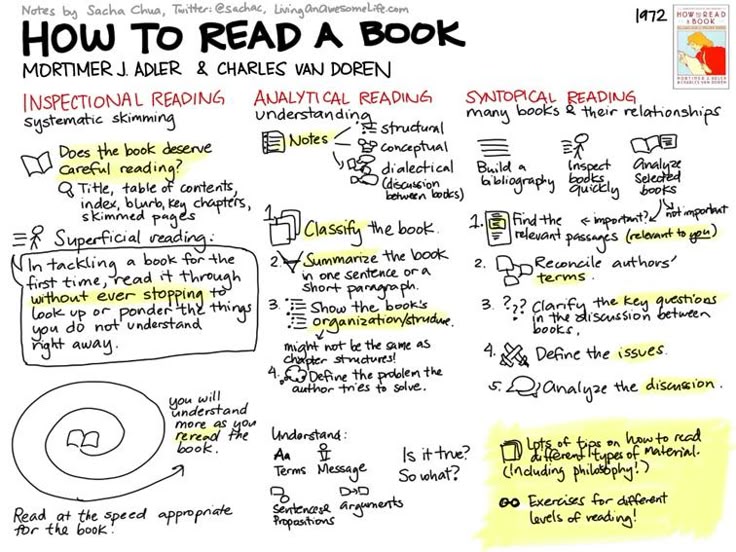 Notes by Sacha Chua, Twitter: @sachac, LivingAnAwesomeLife.com
HOW TO READ A BOOK
MORTIMER J. ADLER & CHARLES VAN DOREN
1972
HOW TO READ
A BOOK
MORTIMER J. ADLER
& CHARLES VAN DOREN
INSPECTIONAL READING
systematic skimming
Does the book deserve
careful reading?
Title, table of contents,
index, blurb, key chapters,
skimmed pages
Superficial reading:
In tackling a book for the
first time, read it through
without ever stopping to
look up or ponder the things
you do not understand
right away.
you will
understand
more as you
reread the
book.
Read at the speed appropriate
for the book!
ANALYTICAL READING
understanding
Notes
structural
conceptual
dialectical
(discussion
between books)
1. Classify the book.
2. Summarize the book
in one sentence or a
short paragraph.
3. Show the book's
organization/structure.
might not be the same as
chapter structures!
4. Define the problem the
author tries to solve.
Understand:
Aa
Terms Message
Sentences & Propositions
arguments
Is it true?
So what?
SYNTOPICAL READING
many books & their relationships
Build a
bibliography
Inspect
books
quickly
Analyze
selected
books
important?
not important
1. Find the
relevant passages (relevant to you)
2. Reconcile authors'
terms.
3. ??? Clarify the key questions
in the discussion between
books.
4. Define the issues.
5. Analyze the discussion.
Lots of tips on how to read
different types of material.
(Including philosophy!)
Exercises for different
levels of reading!